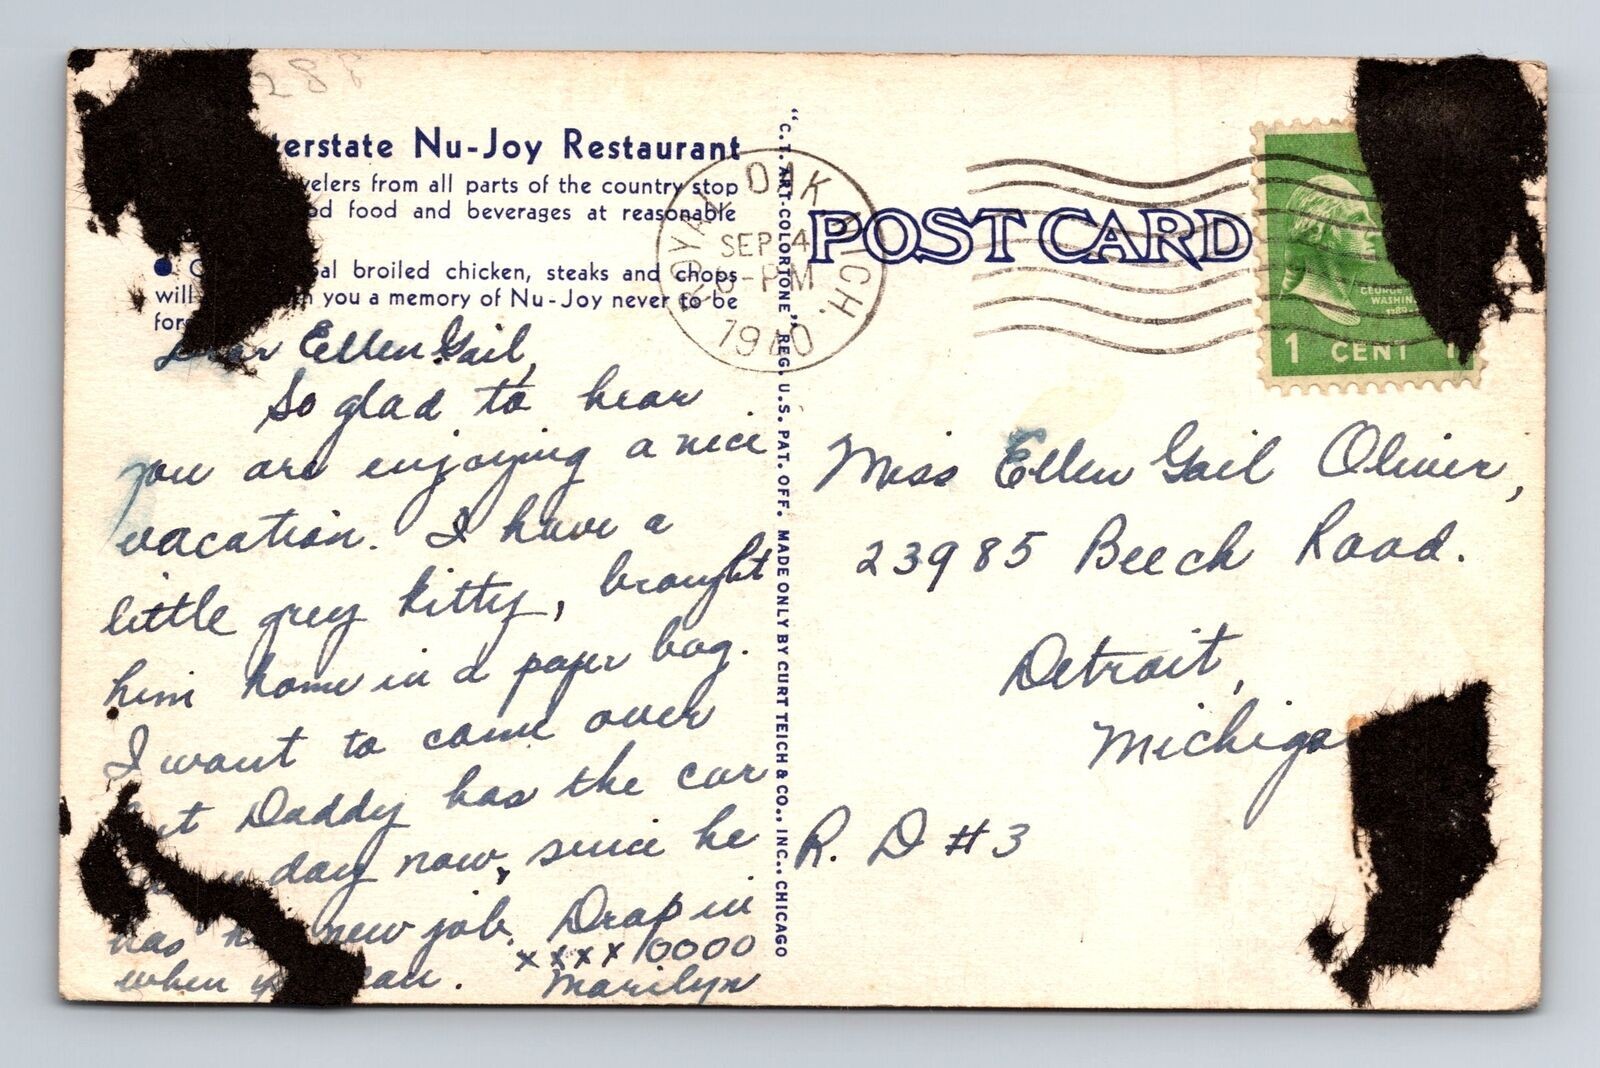 288
terstate Nu-Joy Restaurant
velers from all parts of the country stop
d food and beverages at reasonable
al broiled chicken, steaks and chops
will you a memory of Nu-Joy never to be
for
Dear Ellen Gail,
So glad to hear
you are enjoying a nice
vacation. I have a
little grey kitty, brought
him home in a paper bag.
I want to come over
but Daddy has the car
day now, since he
has new job. Drop in
when can. xxxx 0000
Marilyn
"C.T. ART-COLORTONE" REG. U.S. PAT. OFF. MADE ONLY BY CURT TEICH & CO., INC., CHICAGO
ROYAL OAK MICH.
SEP 4
PM
1940
POST CARD
GEORGE
WASHIN
1789-
1 CENT 1
Miss Ellen Gail Oliver,
23985 Beech Road.
Detroit,
Michiga
R. D #3